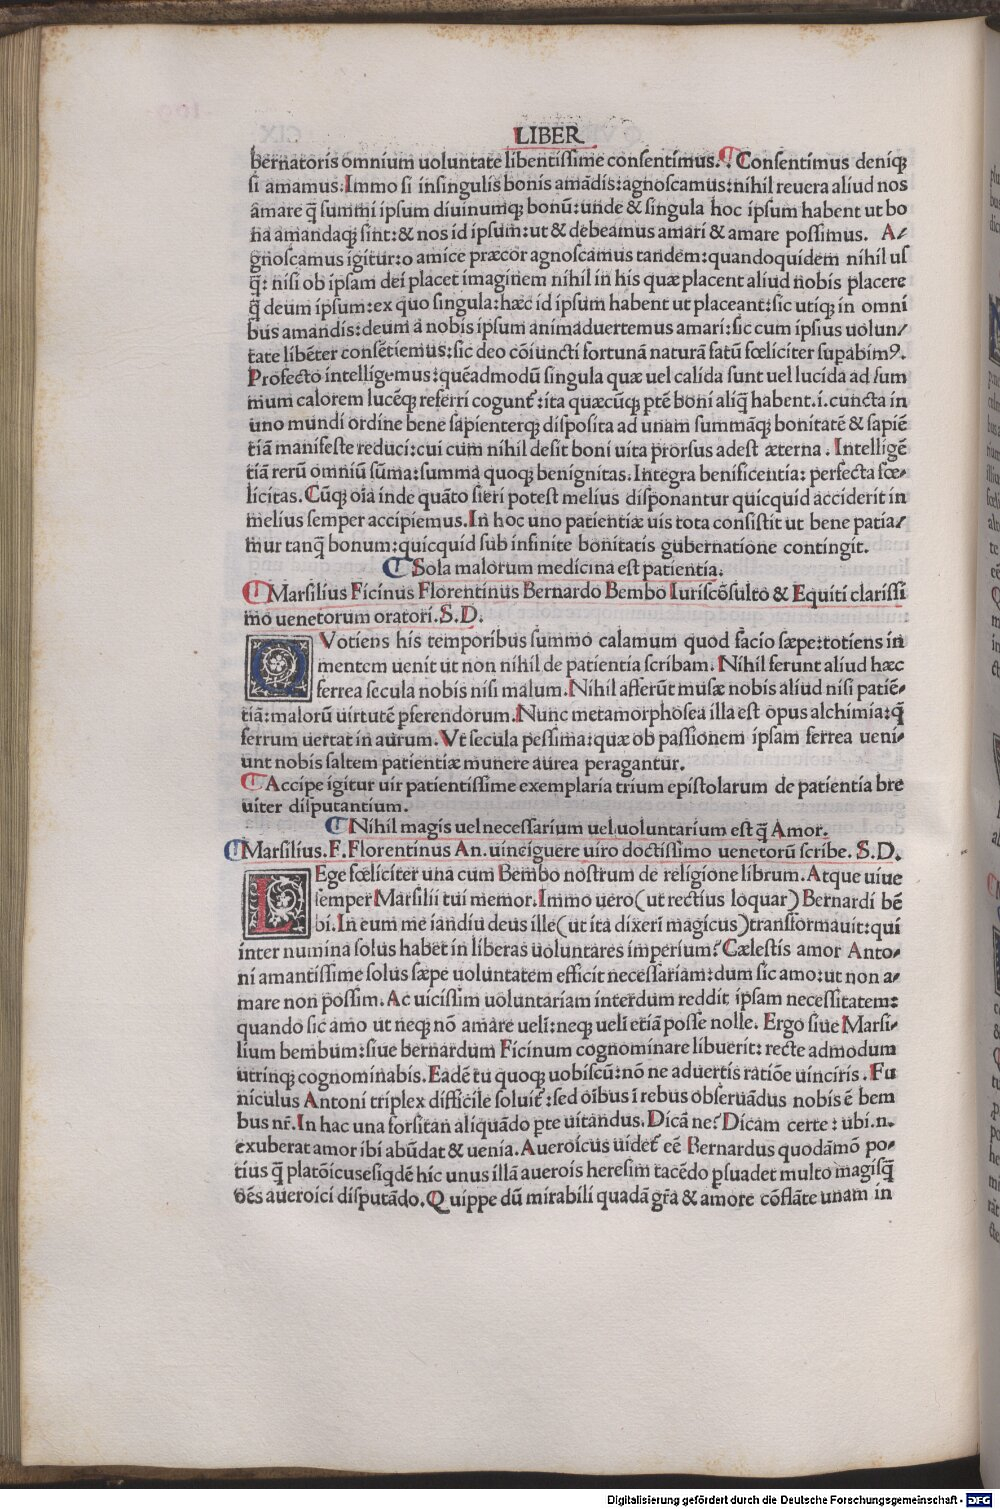 LIBER
bernatoris omnium uoluntate libentissime consentimus. Consentimus deniqꝫ
si amamus. Immo si insingulis bonis amādis: agnoscamus: nihil reuera aliud nos
amare q̃ summi ipsum diuinumqꝫ bonū: unde & singula hoc ipsum habent ut bo
na amandaqꝫ sint: & nos id ipsum: ut & debeamus amari & amare possimus. A/
gnoscamus igitur: o amice præcor agnoscamus tandem: quandoquidem nihil us
q̃: nisi ob ipsam dei placet imaginem nihil in his quæ placent aliud nobis placere
q̃ deum ipsum: ex quo singula: hæc id ipsum habent ut placeant: sic utiqꝫ in omni
bus amandis: deum a nobis ipsum animaduertemus amari: sic cum ipsius uolun/
tate libēter consētiemus: sic deo cōiuncti fortunā naturā fatū fœliciter supabimꝰ.
Profecto intelligemus: quēadmodū singula quæ uel calida sunt uel lucida ad sum
mum calorem lucēqꝫ referri cogunt̃: ita quæcūqꝫ ptē boni aliq̃ habent. i. cuncta in
uno mundi ordine bene sapienterqꝫ disposita ad unam summāqꝫ bonitatē & sapiē
tiā manifeste reduci: cui cum nihil desit boni uita prorsus adest æterna. Intelligē
tiā rerū omniū sūma: summa quoqꝫ benignitas. Integra benificentia: perfecta fœ-
licitas. Cūqꝫ oīa inde quāto fieri potest melius disponantur quicquid acciderit in
melius semper accipiemus. In hoc uno patientiæ uis tota consistit ut bene patia/
mur tanq̃ bonum: quicquid sub infinite bonitatis gubernatione contingit.
Sola malorum medicina est patientia.
Marsilius Ficinus Florentinus Bernardo Bembo Iuriscōsulto & Equiti clarissi
mo uenetorum oratori. S. D.
QVotiens his temporibus summo calamum quod facio sæpe: totiens in
mentem uenit ut non nihil de patientia scribam. Nihil ferunt aliud hæc
ferrea secula nobis nisi malum. Nihil afferūt musæ nobis aliud nisi patiē-
tiā: malorū uirtutē pferendorum. Nunc metamorphosea illa est opus alchimia: q̃
ferrum uertat in aurum. Vt secula pessima: quæ ob passionem ipsam ferrea ueni-
unt nobis saltem patientiæ munere aurea peragantur.
Accipe igitur uir patientissime exemplaria trium epistolarum de patientia bre
uiter disputantium.
Nihil magis uel necessarium uel uoluntarium est q̃ Amor.
Marsilius. F. Florentinus An. uinciguere uiro doctissimo uenetorū scribe. S. D.
LEge fœliciter una cum Bembo nostrum de religione librum. Atque uiue
semper Marsilii tui memor. Immo uero (ut rectius loquar) Bernardi bē
bi. In eum me iandiu deus ille (ut ita dixeri magicus) transformauit: qui
inter numina solus habet in liberas uoluntares imperium? Cælestis amor Anto-
ni amantissime solus sæpe uoluntatem efficit necessariam: dum sic amo: ut non a-
mare non possim. Ac uicissim uoluntariam interdum reddit ipsam necessitatem:
quando sic amo ut neqꝫ nō amare ueli: neqꝫ ueli etiā posse nolle. Ergo siue Marsi-
lium bembum: siue bernardum Ficinum cognominare libuerit: recte admodum
utrinqꝫ cognominabis. Eadē tu quoqꝫ uobiscū: nō ne aduertis ratiōe uinciris. Fu
niculus Antoni triplex difficile soluit̃: sed oībus ī rebus obseruādus nobis ē bem
bus nr̃. In hac una forsitan aliquādo pte uitandus. Dicā ne? Dicam certe: ubi. n.
exuberat amor ibi abūdat & uenia. Aueroicus uidet̃ eē Bernardus quodāmō po-
tius q̃ platōicus esiqdē hic unus illā auerois heresim tacēdo psuadet multo magisq̃
oēs aueroici disputādo. Quippe dū mirabili quadā gr̃a & amore cōflāte unam in
Digitalisierung gefördert durch die Deutsche Forschungsgemeinschaft - DFG